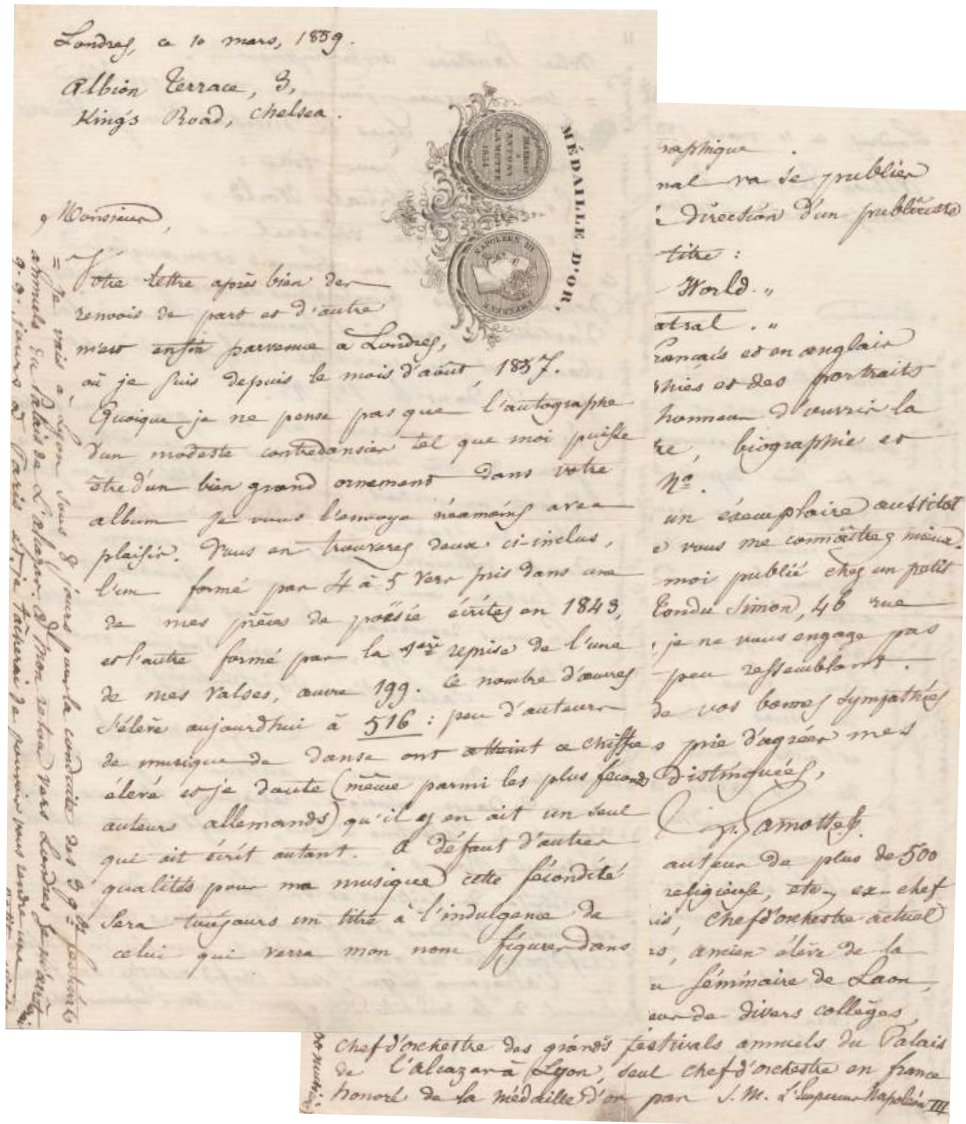 Londres, ce 10 mars, 1859.
Albion Terrace, 3,
King's Road, Chelsea.
MÉDAILLE D'OR,
NAPOLEON III
EMPEREUR
Monsieur,
Votre lettre après bien des
renvois de part et d'autre
m'est enfin parvenue à Londres,
où je suis depuis le mois d'août, 1857.
Quoique je ne pense pas que l'autographe
d'un modeste contredansier tel que moi puisse
être d'un bien grand ornement dans votre
album je vous l'envoye néamoins avec
plaisir. Vous en trouverez deux ci-inclus,
l'un formé par 4 à 5 vers pris dans une
de mes pièces de poësie écrites en 1843,
et l'autre formé par la 1ère reprise de l'une
de mes valses, œuvre 199. Ce nombre d'œuvres
s'élève aujourdhui à 516 : peu d'auteurs
de musique de danse ont atteint ce chiffre
élévé et je doute (même parmi les plus féconds
auteurs allemands) qu'il y en ait un seul
qui ait écrit autant. A défaut d'autres
qualités pour ma musique cette fécondité
sera toujours un titre à l'indulgence de
celui qui verra mon nom figurer dans
= je vais à Lyon sous 8 jours pour la conduite des 3 gds festivals
annuels du Palais de L'alcazar. à mon retour vers Londres je m'arrêt
q.q. jours à Paris et je tâcherai de pouvoir vous rendre une
raphique.
nal va se publier
direction d'un publiciste
titre :
World. "
atral. "
français et en anglais
et des portraits
honneur d'ouvrir la
re, biographie et
No.
un éxemplaire aussitôt
e vous me connoîtrez mieux.
moi publié chez un petit
Simon, 46 rue
, je ne vous engage pas
peu ressemblant.
de vos bonnes sympathies
s prie d'agréer mes
distinguées,
Lamotte
auteur de plus de 500
religieuse, etc, ex-chef
, chef d'orchestre actuel
, ancien élève de la
séminaire de Laon,
eur de divers collèges,
chef d'orchestre des grands festivals annuels du Palais
de l'alcazar à Lyon, seul chef d'orchestre en france
honoré de la médaille d'or par S. M. L'Empereur Napoléon III